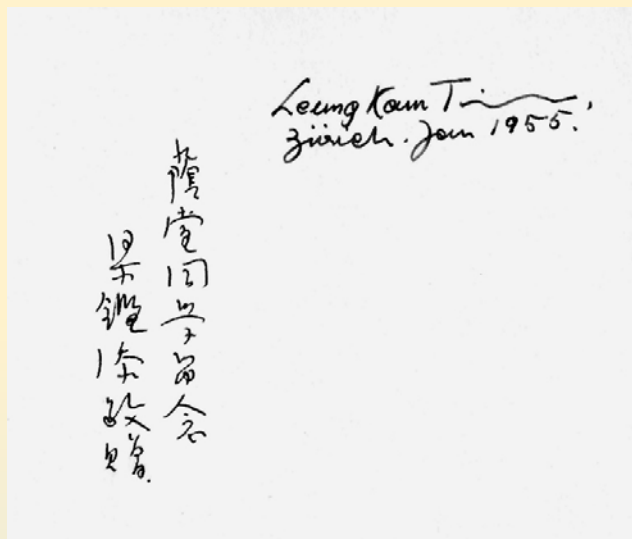 Leung Kam Tim.
Zürich. Jan 1955.
蔭堂同学留念
梁鑑添敬贈.